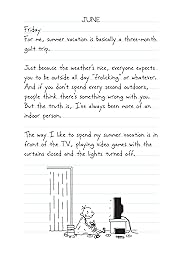 JUNE
Friday
For me, summer vacation is basically a three-month
guilt trip.
Just because the weather's nice, everyone expects
you to be outside all day "frolicking" or whatever.
And if you don't spend every second outdoors,
people think there's something wrong with you.
But the truth is, I've always been more of an
indoor person.
The way I like to spend my summer vacation is in
front of the TV, playing video games with the
curtains closed and the lights turned off.